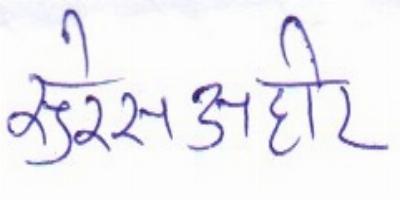 सुरेस अहीर